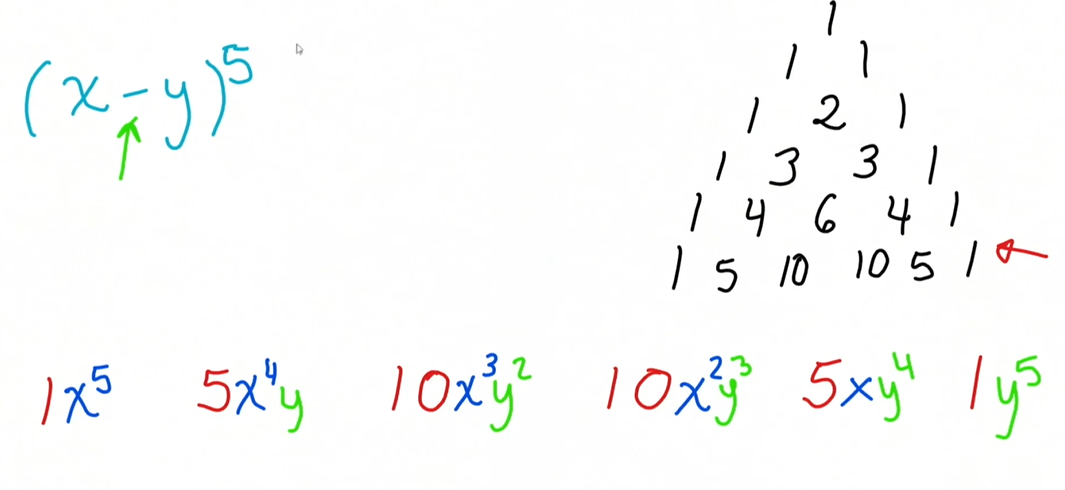 (x - y)⁵
1
1 1
1 2 1
1 3 3 1
1 4 6 4 1
1 5 10 10 5 1
1x⁵ 5x⁴y 10x³y² 10x²y³ 5xy⁴ 1y⁵